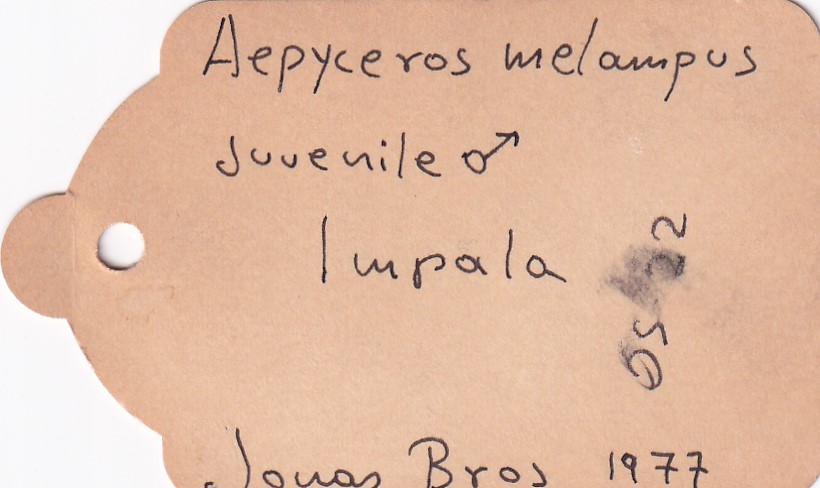 Aepyceros melampus
Juvenile ♂
Impala
Jonas Bros 1977